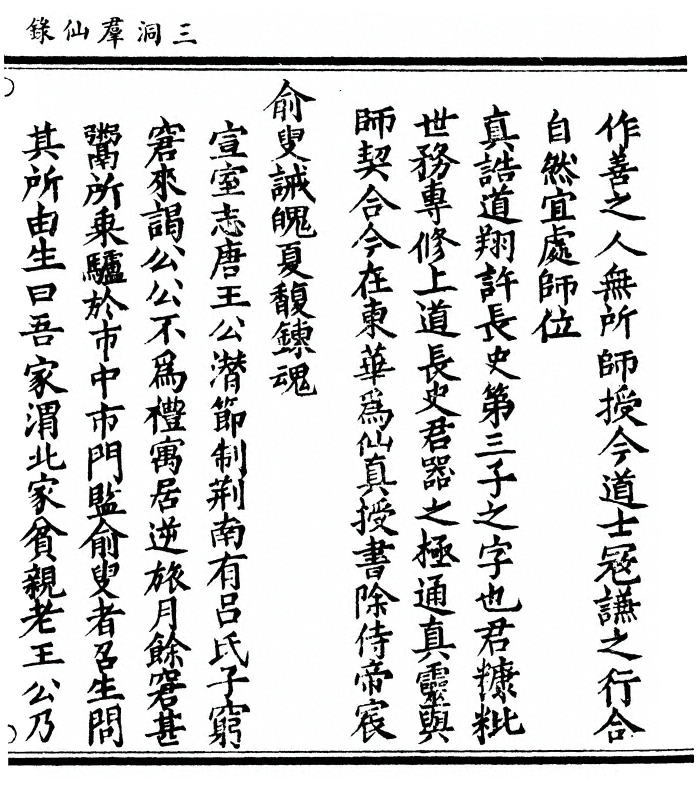 三洞羣仙錄
作善之人無所師授今道士冠謙之行合
自然宜處師位
真誥道翔許長史第三子之字也君糠粃
世務專修上道長史君器之極通真靈與
師契合今在東華爲仙真授書除侍帝宸
俞叟誡䰟夏馥鍊魂
宣室志唐王公潛節制荆南有吕氏子窮
窘來謁公公不爲禮寓居逆旅月餘窘甚
鬻所乘驢於市中市門監俞叟者召生問
其所由生曰吾家渭北家貧親老王公乃